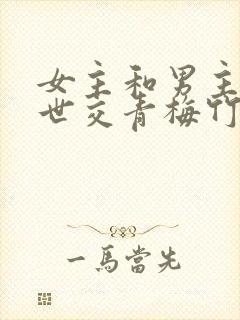 女主和男主
世交青梅竹
一馬當先